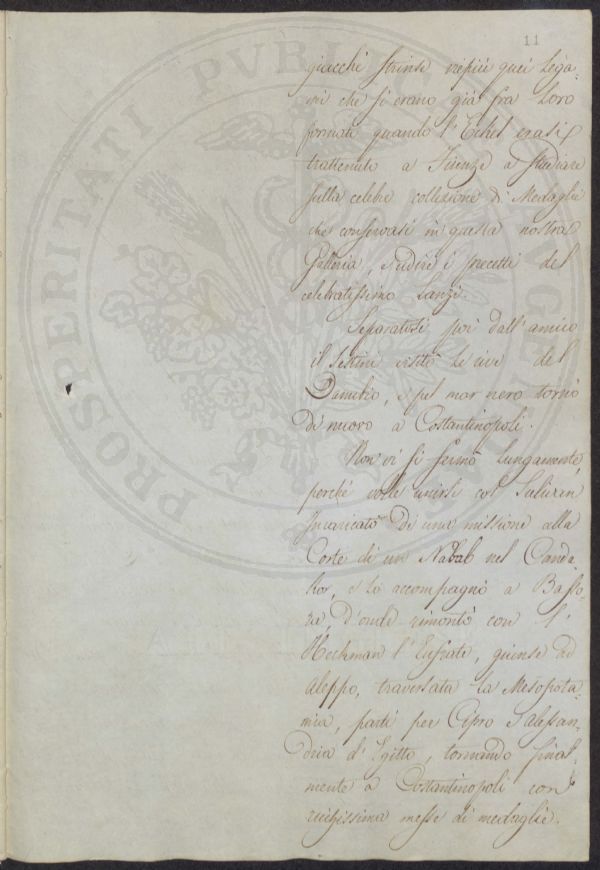 11
giacchè strinse vieppiù quei lega-
mi che si erano già fra Loro
formati quando l'Echel erasi
trattenuto a Firenze a studiare
sulla celebre collezione di Medaglie
che conservasi in questa nostra
Galleria, e udire i precetti del
celebratissimo Lanzi.
Separatosi poi dall'amico
il Sestini visitò le rive del
Danubio, e pel mar nero tornò
di nuovo a Costantinopoli.
Non vi si fermò lungamente
perchè volle unirsi col Sulivan
Incaricato di una missione alla
Corte di un Nabab nel Canda-
hor, e lo accompagnò a Basso-
ra, d'onde rimontò con l'
Hechman l'Eufrate, giunse ad
Aleppo, traversata la Mesopota-
mia, partì per Cipro Alessan-
dria d'Egitto, tornando final-
mente a Costantinopoli con
ricchissima messe di medaglie.
PROSPERITATI PVBLICAE AVGENDAE